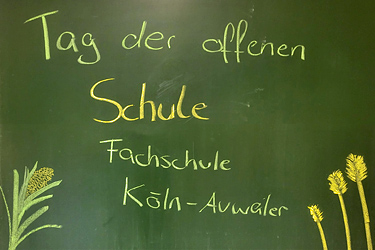 Tag der offenen
Schule
Fachschule
Köln-Auwäler